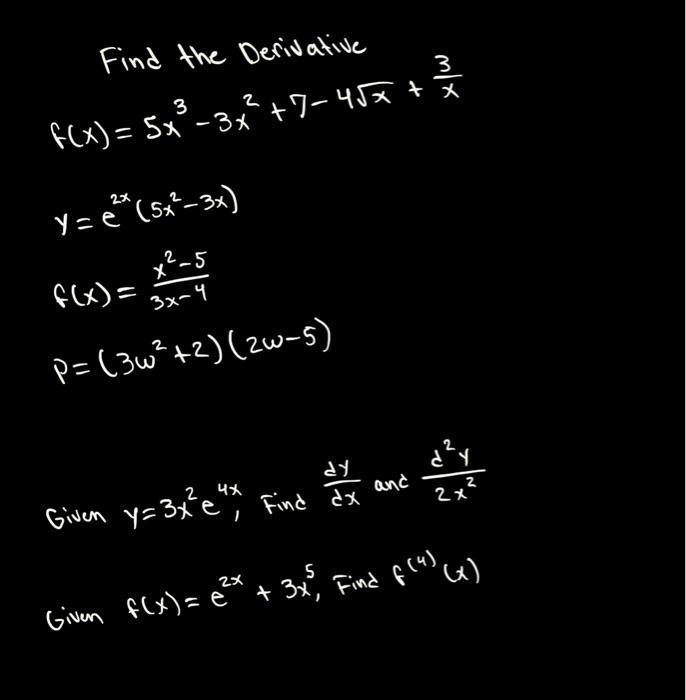 Find the Derivative
f(x) = 5x³ - 3x² + 7 - 4√x + 3/x
y = e²ˣ (5x² - 3x)
f(x) = (x² - 5)/(3x - 4)
P = (3w² + 2)(2w - 5)
Given y = 3x²e⁴ˣ, Find dy/dx and d²y/2x²
Given f(x) = e²ˣ + 3x⁵, Find f⁽⁴⁾(x)